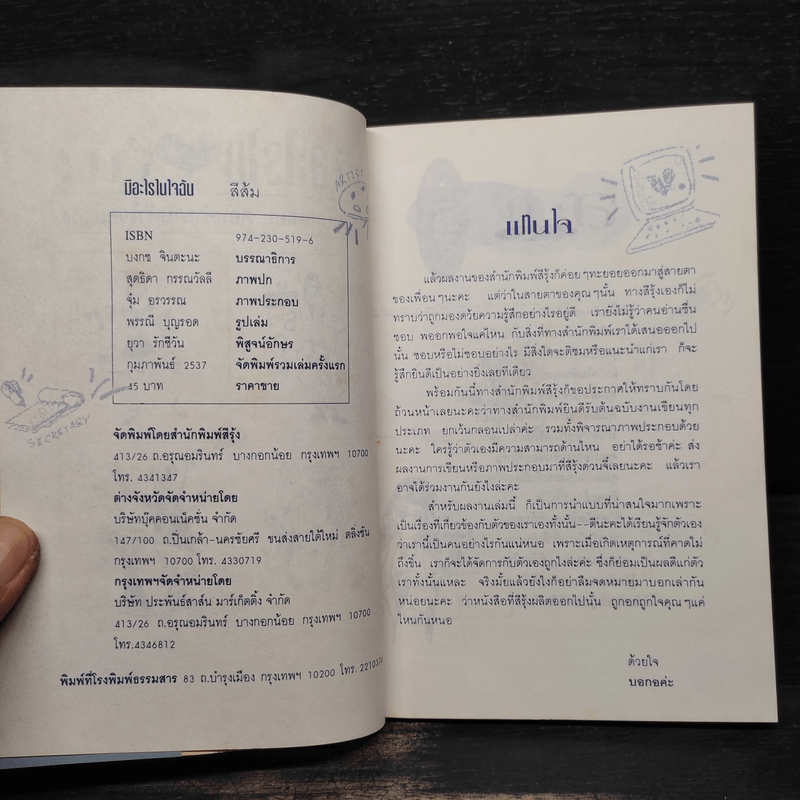 มีอะไรในใจฉัน สีส้ม
ARTIST
ISBN 974-230-519-6
บงกช จินตะนะ บรรณาธิการ
สุดธิดา กรรณวัลลี ภาพปก
จุ๋ม อรวรรณ ภาพประกอบ
พรรณี บุญรอด รูปเล่ม
ยุวา รักชีวัน พิสูจน์อักษร
กุมภาพันธ์ 2537 จัดพิมพ์รวมเล่มครั้งแรก
45 บาท ราคาขาย
SECRETARY
จัดพิมพ์โดยสำนักพิมพ์สีรุ้ง
413/26 ถ.อรุณอมรินทร์ บางกอกน้อย กรุงเทพฯ 10700
โทร. 4341347
ต่างจังหวัดจัดจำหน่ายโดย
บริษัทบุ๊คคอนเน็คชั่น จำกัด
147/100 ถ.ปิ่นเกล้า-นครชัยศรี ขนส่งสายใต้ใหม่ ตลิ่งชัน
กรุงเทพฯ 10700 โทร. 4330719
กรุงเทพฯจัดจำหน่ายโดย
บริษัท ประพันธ์สาส์น มาร์เก็ตติ้ง จำกัด
413/26 ถ.อรุณอมรินทร์ บางกอกน้อย กรุงเทพฯ 10700
โทร.4346812
พิมพ์ที่โรงพิมพ์ธรรมสาร 83 ถ.บำรุงเมือง กรุงเทพฯ 10200 โทร.
แทนใจ
แล้วผลงานของสำนักพิมพ์สีรุ้งก็ค่อยๆทะยอยออกมาสู่สายตา
ของเพื่อนๆนะคะ แต่ว่าในสายตาของคุณๆนั้น ทางสีรุ้งเองก็ไม่
ทราบว่าถูกมองด้วยความรู้สึกอย่างไรอยู่ดี เรายังไม่รู้ว่าคนอ่านชื่น
ชอบ พออกพอใจแค่ไหน กับสิ่งที่ทางสำนักพิมพ์เราได้เสนอออกไป
นั้น ชอบหรือไม่ชอบอย่างไร มีสิ่งใดจะติชมหรือแนะนำแก่เรา ก็จะ
รู้สึกยินดีเป็นอย่างยิ่งเลยทีเดียว
พร้อมกันนี้ทางสำนักพิมพ์สีรุ้งก็ขอประกาศให้ทราบกันโดย
ถ้วนหน้าเลยนะคะว่าทางสำนักพิมพ์ยินดีรับต้นฉบับงานเขียนทุก
ประเภท ยกเว้นกลอนเปล่าค่ะ รวมทั้งพิจารณาภาพประกอบด้วย
นะคะ ใครรู้ตัวว่าเองมีความสามารถด้านไหน อย่าได้รอช้าค่ะ ส่ง
ผลงานการเขียนหรือภาพประกอบมาที่สีรุ้งด่วนจี๋เลยนะคะ แล้วเรา
อาจได้ร่วมงานกันยังไงล่ะคะ
สำหรับผลงานเล่มนี้ ก็เป็นการนำแบบที่น่าสนใจมากเพราะ
เป็นเรื่องที่เกี่ยวข้องกับตัวของเราเองทั้งนั้น--ดีนะคะได้เรียนรู้จักตัวเอง
ว่าเรานี้เป็นคนอย่างไรกันแน่หนอ เพราะเมื่อเกิดเหตุการณ์ที่คาดไม่
ถึงขึ้น เราก็จะได้จัดการกับตัวเองถูกไงล่ะคะ ซึ่งก็ย่อมเป็นผลดีแก่ตัว
เราทั้งนั้นแหละ จริงมั้ยแล้วยังไงก็อย่าลืมจดหมายมาบอกเล่ากัน
หน่อยนะคะ ว่าหนังสือที่สีรุ้งผลิตออกไปนั้น ถูกอกถูกใจคุณๆแค่
ไหนกันหนอ
ด้วยใจ
บอกอค่ะ